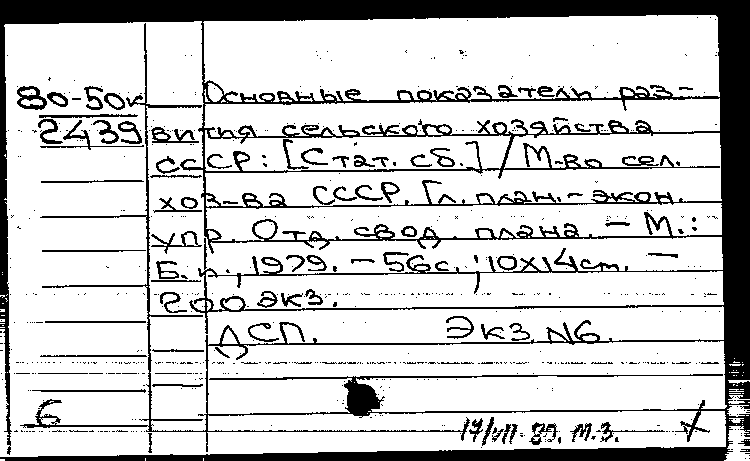 80-50к Основные показатели раз-
2439 вития сельского хозяйства
СССР: [Стат. сб.] / М-во сел.
хоз-ва СССР. Гл. план.-экон.
упр. Отд. свод. плана. — М.:
Б. и., 1979. — 56с.; 10х14см. —
200 экз.
ДСП. Экз. N6.
6
17/VII-80. М.З.